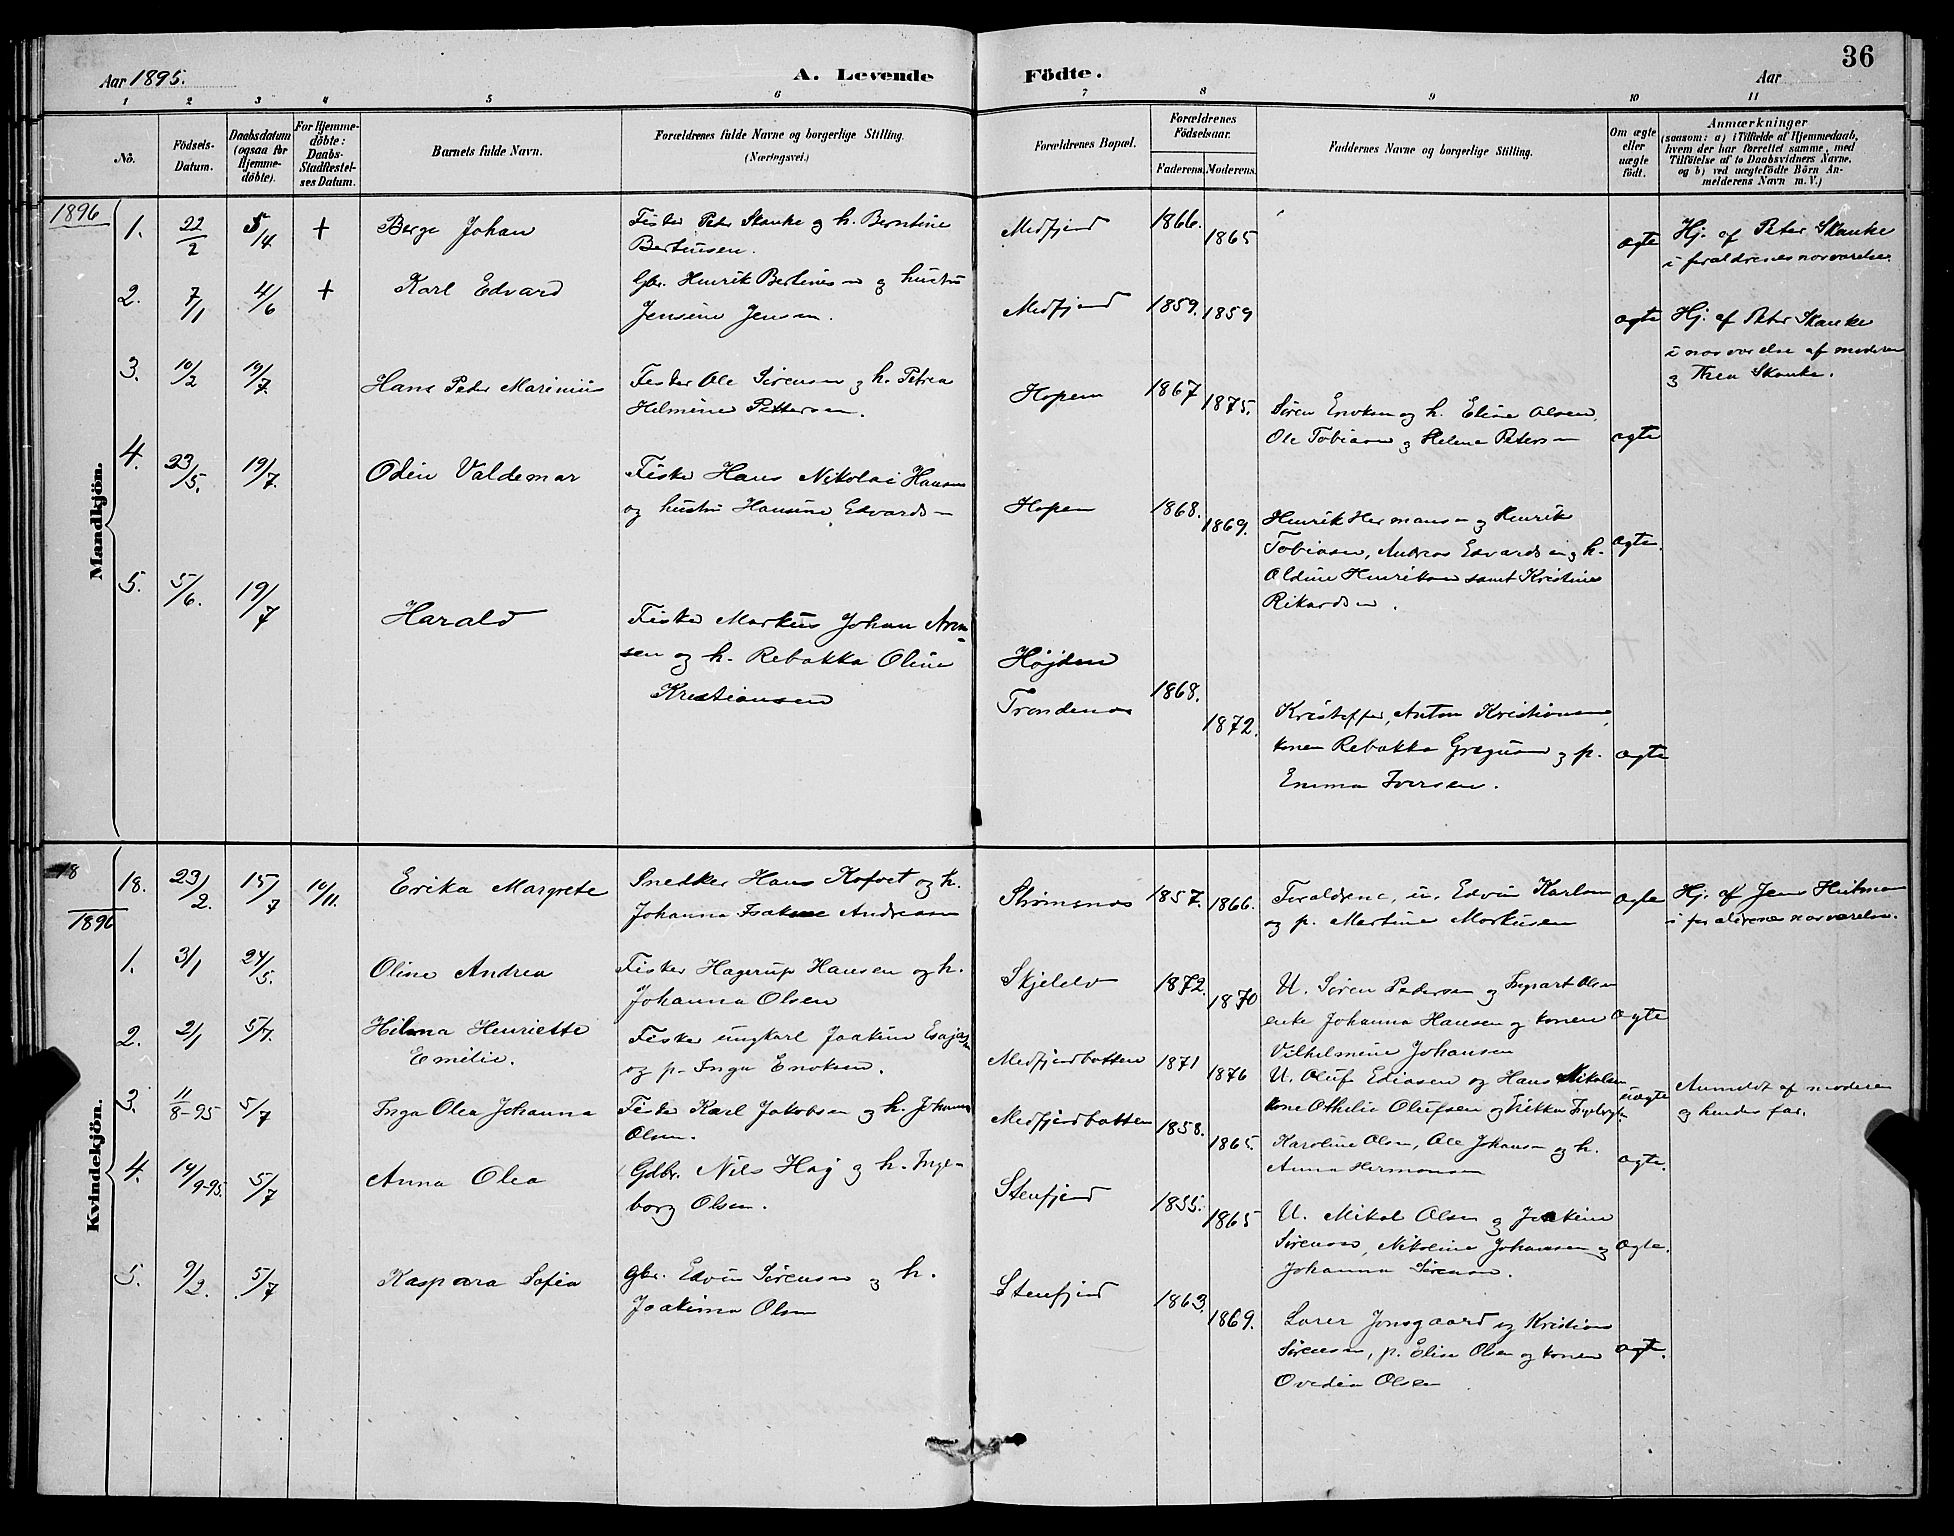 36
Aar 1895.
A. Levende
Födte.
Aar
1 2 3 4 5 6 7 8 9 10 11
Nö.
Födsels-
Datum.
Daabsdatum
(ogsaa for
Hjemme-
döbte).
For Hjemme-
döbte:
Daabs-
Stadfæstel-
ses Datum.
Barnets fulde Navn.
Forældrenes fulde Navne og borgerlige Stilling.
(Næringsvei.)
Forældrenes Bopæl.
Forældrenes
Födselsaar.
Faderens. Moderens.
Faddernes Navne og borgerlige Stilling.
Om ægte
eller
uægte
födt.
Anmærkninger
(saasom: a) i Tilfælde af Hjemmedaab,
hvem der har forrettet samme, med
Tilföielse af to Daabsvidners Navne,
og b) ved uægtefödte Börn An-
melderens Navn m. V.)
Mandkjön.
1896
1. 22/2 5/4 + Berge Johan
Fisker Peter Skanke og h. Berntine
Bertinsen.
Medfjord 1866. 1865 ægte
Hj. af Peter Skanke
i forældrenes nærværelse
2. 7/1 4/6 + Karl Edvard
Gbr. Henrik Bertinesen og hustru
Jensine Jensen.
Medfjord 1859. 1859 ægte
Hj. af Peter Skanke
i nærværelse af moderen
og Thea Skanke.
3. 10/2 19/7. Hans Peder Marinius
Fisker Ole Sørensen og h. Petrea
Helmine Pettersen.
Hopen 1867 1875.
Søren Enoksen og h. Eline Olsen,
Ole Tobiasen og Helene Petersen ægte
4. 23/5. 19/7. Odin Valdemar
Fisker Hans Nikolai Hansen
og hustru Hansine Edvardsen
Hopen 1868. 1869.
Henrik Hermansen og Henrik
Tobiasen, Andreas Edvardsen og h.
Oldine Henriksen samt Kristine
Rikardsen.
ægte.
5. 5/6. 19/7 Harald
Fisker Markus Johan Arn-
sen og h. Rebakka Oline
Kristiansen
Højden
Trondenæs
1868. 1872.
Kristoffer, Anton Kristiansen,
konen Rebakka Gregusen og p.
Emma Iversen.
ægte
Kvindekjön.
18
18. 23/2. 15/7 10/11. Erika Margrete
Snedker Hans Kofoet og h.
Johanna Isaksen Andreasen
Strømsnæs 1857. 1866.
Forældrene, u. Edvin Karlsen
og p. Martine Markusen
ægte
Hj. af Jens Heitman
i forældrenes nærværelse.
1896
1. 3/1 24/5. Oline Andrea
Fisker Hagerup Hansen og h.
Johanna Olsen
Skjelelv 1872. 1870
U. Søren Pedersen og Ingvart Olsen
enke Johanna Hansen og konen
Vilhelmine Johansen
ægte
2. 2/1 5/7. Hilma Henriette
Emilie.
Fisker ungkarl Joakim Esajasen
og p. Inga Enoksen.
Medfjordbotten 1871 1876
U. Oluf Ediasen og Hans Nikolaisen
kone Othelie Olufsen og Erikka Ingebrigtsen
uægte
Anmeldt af moderen
og hendes far.
3. 11/8-95 5/7 Inga Olea Johanna
Fisker Karl Jakobsen og h. Johanna
Olsen.
Medfjordbotten 1858. 1865.
Karoline Olsen, Ole Johansen og h.
Anna Hermansen
ægte.
4. 14/9-95. 5/7 Anna Olea
Gdbr. Nils Høg og h. Inge-
borg Olsen.
Stenfjord 1855. 1865
U. Mikal Olsen og Joakim
Sørensen, Nikoline Johansen og
Johanna Sørensen.
ægte.
5. 9/2. 5/7 Kaspara Sofia
Gbr. Edvin Sørensen og h.
Joakima Olsen
Stenfjord 1863. 1869.
Lorer Jonsgaard og Kristian
Sørensen, p. Elise Olsen og konen
Ovedia Olsen
ægte.